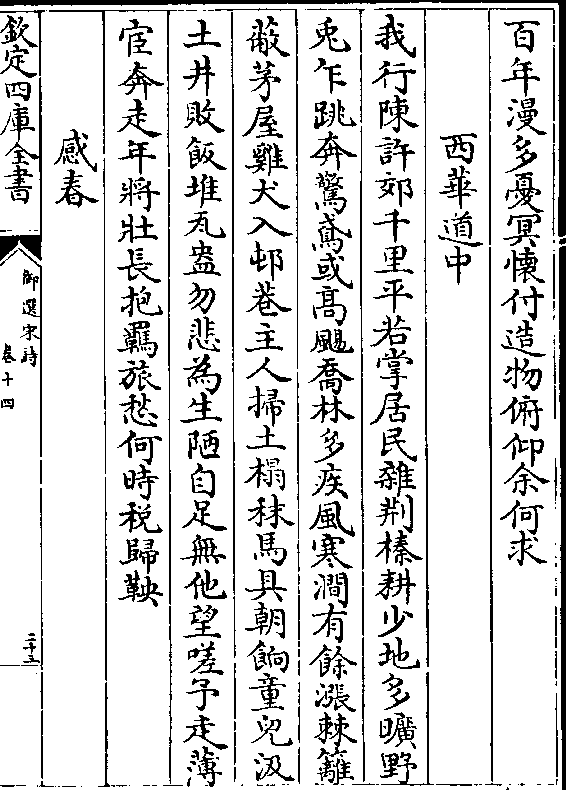 百年漫多憂冥懷付造物俯仰余何求
西華道中
我行陳許郊千里平若掌居民雜荆榛耕少地多曠野
兎乍跳奔驚鳶或髙颺喬林多疾風寒澗有餘漲棘籬
蔽茅屋雞犬入邨巷主人掃土榻秣馬具朝餉童兒汲
土井敗飯堆瓦盎勿悲為生陋自足無他望嗟予走薄
宦奔走年將壯長抱羇旅愁何時税歸鞅
感春
欽定四庫全書
御選宋詩
卷十四
二十三